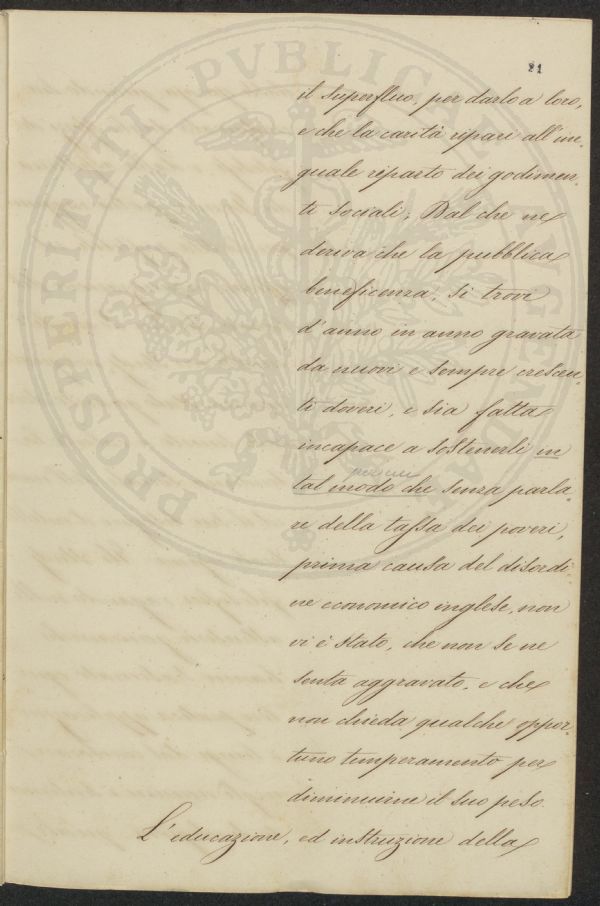 21
il superfluo, per darlo a loro,
e che la carità ripari all'ine,
guale riparto dei godimen,
ti sociali; Dal che ne
deriva che la pubblica
beneficenza, si trovi
d'anno in anno gravata
da nuovi e sempre crescen,
ti doveri, e sia fatta
incapace a sostenerli in
tal modo che senza parla,
re della tassa dei poveri,
prima causa del disordi
ne economico inglese, non
vi è stato, che non se ne
senta aggravato, e che
non chieda qualche oppor,
tuno temperamento per
diminuirne il suo peso.
L'educazione, ed instruzione della
PROSPERITATI PVBLICAE AVGENDAE